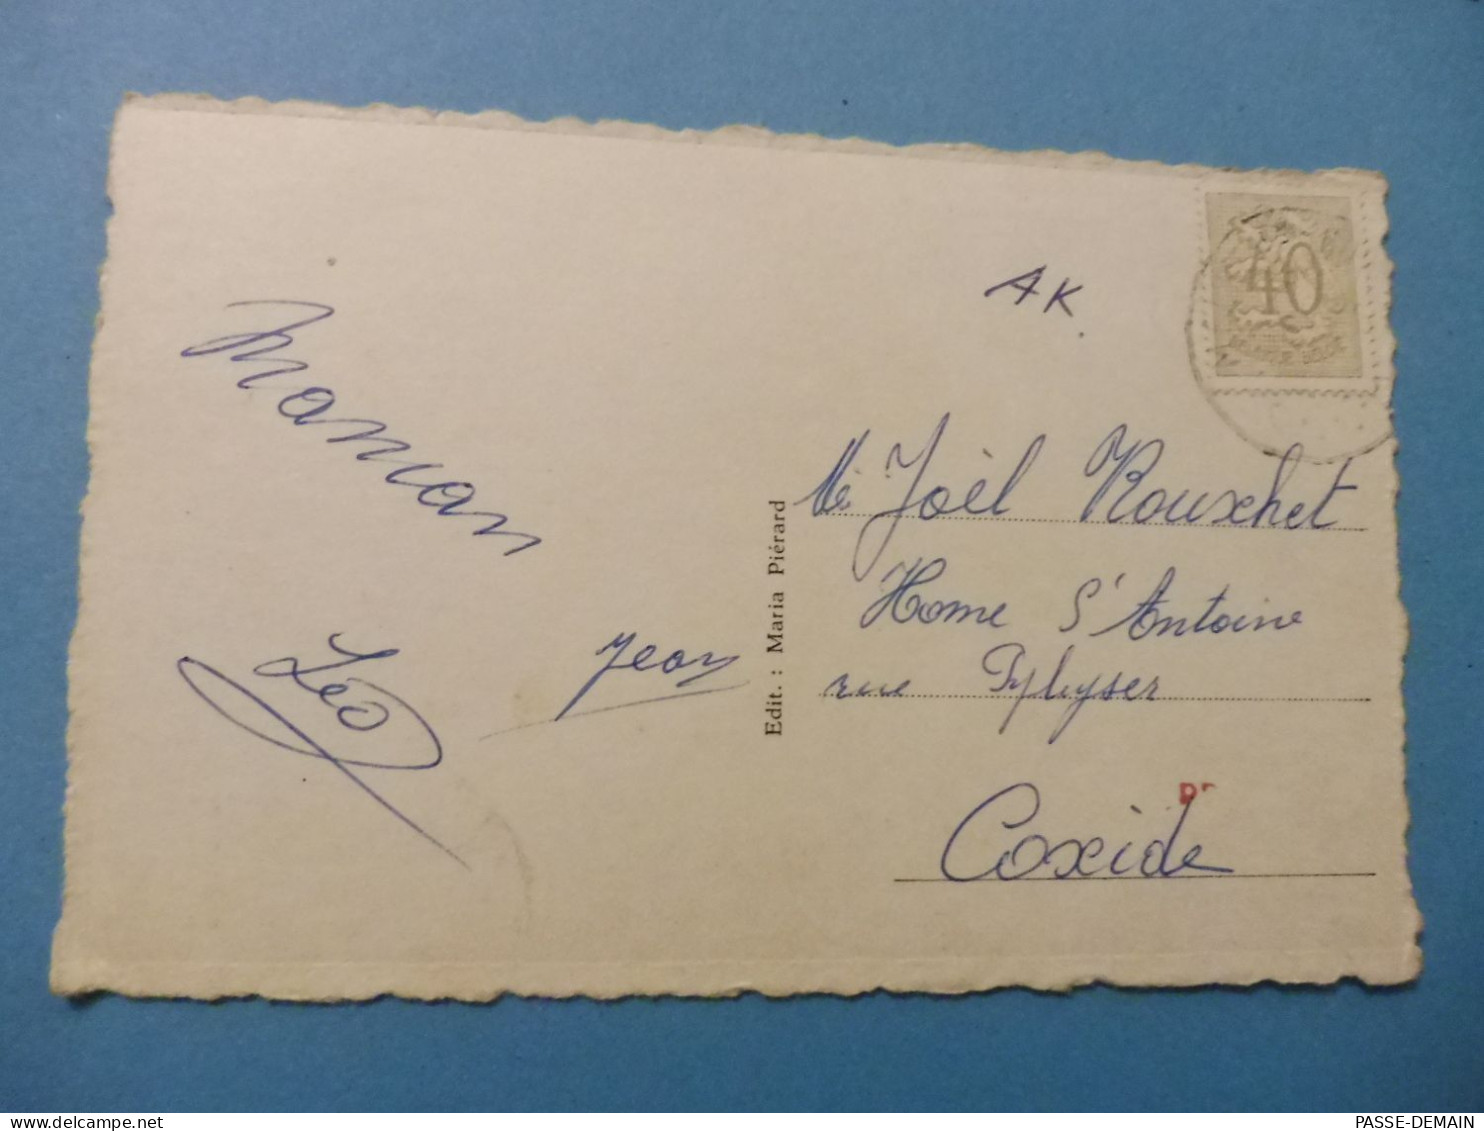 AK
40
BELGIQUE BELGIE
Maman
Léo
Jean
Edit. : Maria Piérard
Joèl Rouxhet
Home St Antoine
rue
Coxide
www.delcampe.net
PASSE-DEMAIN